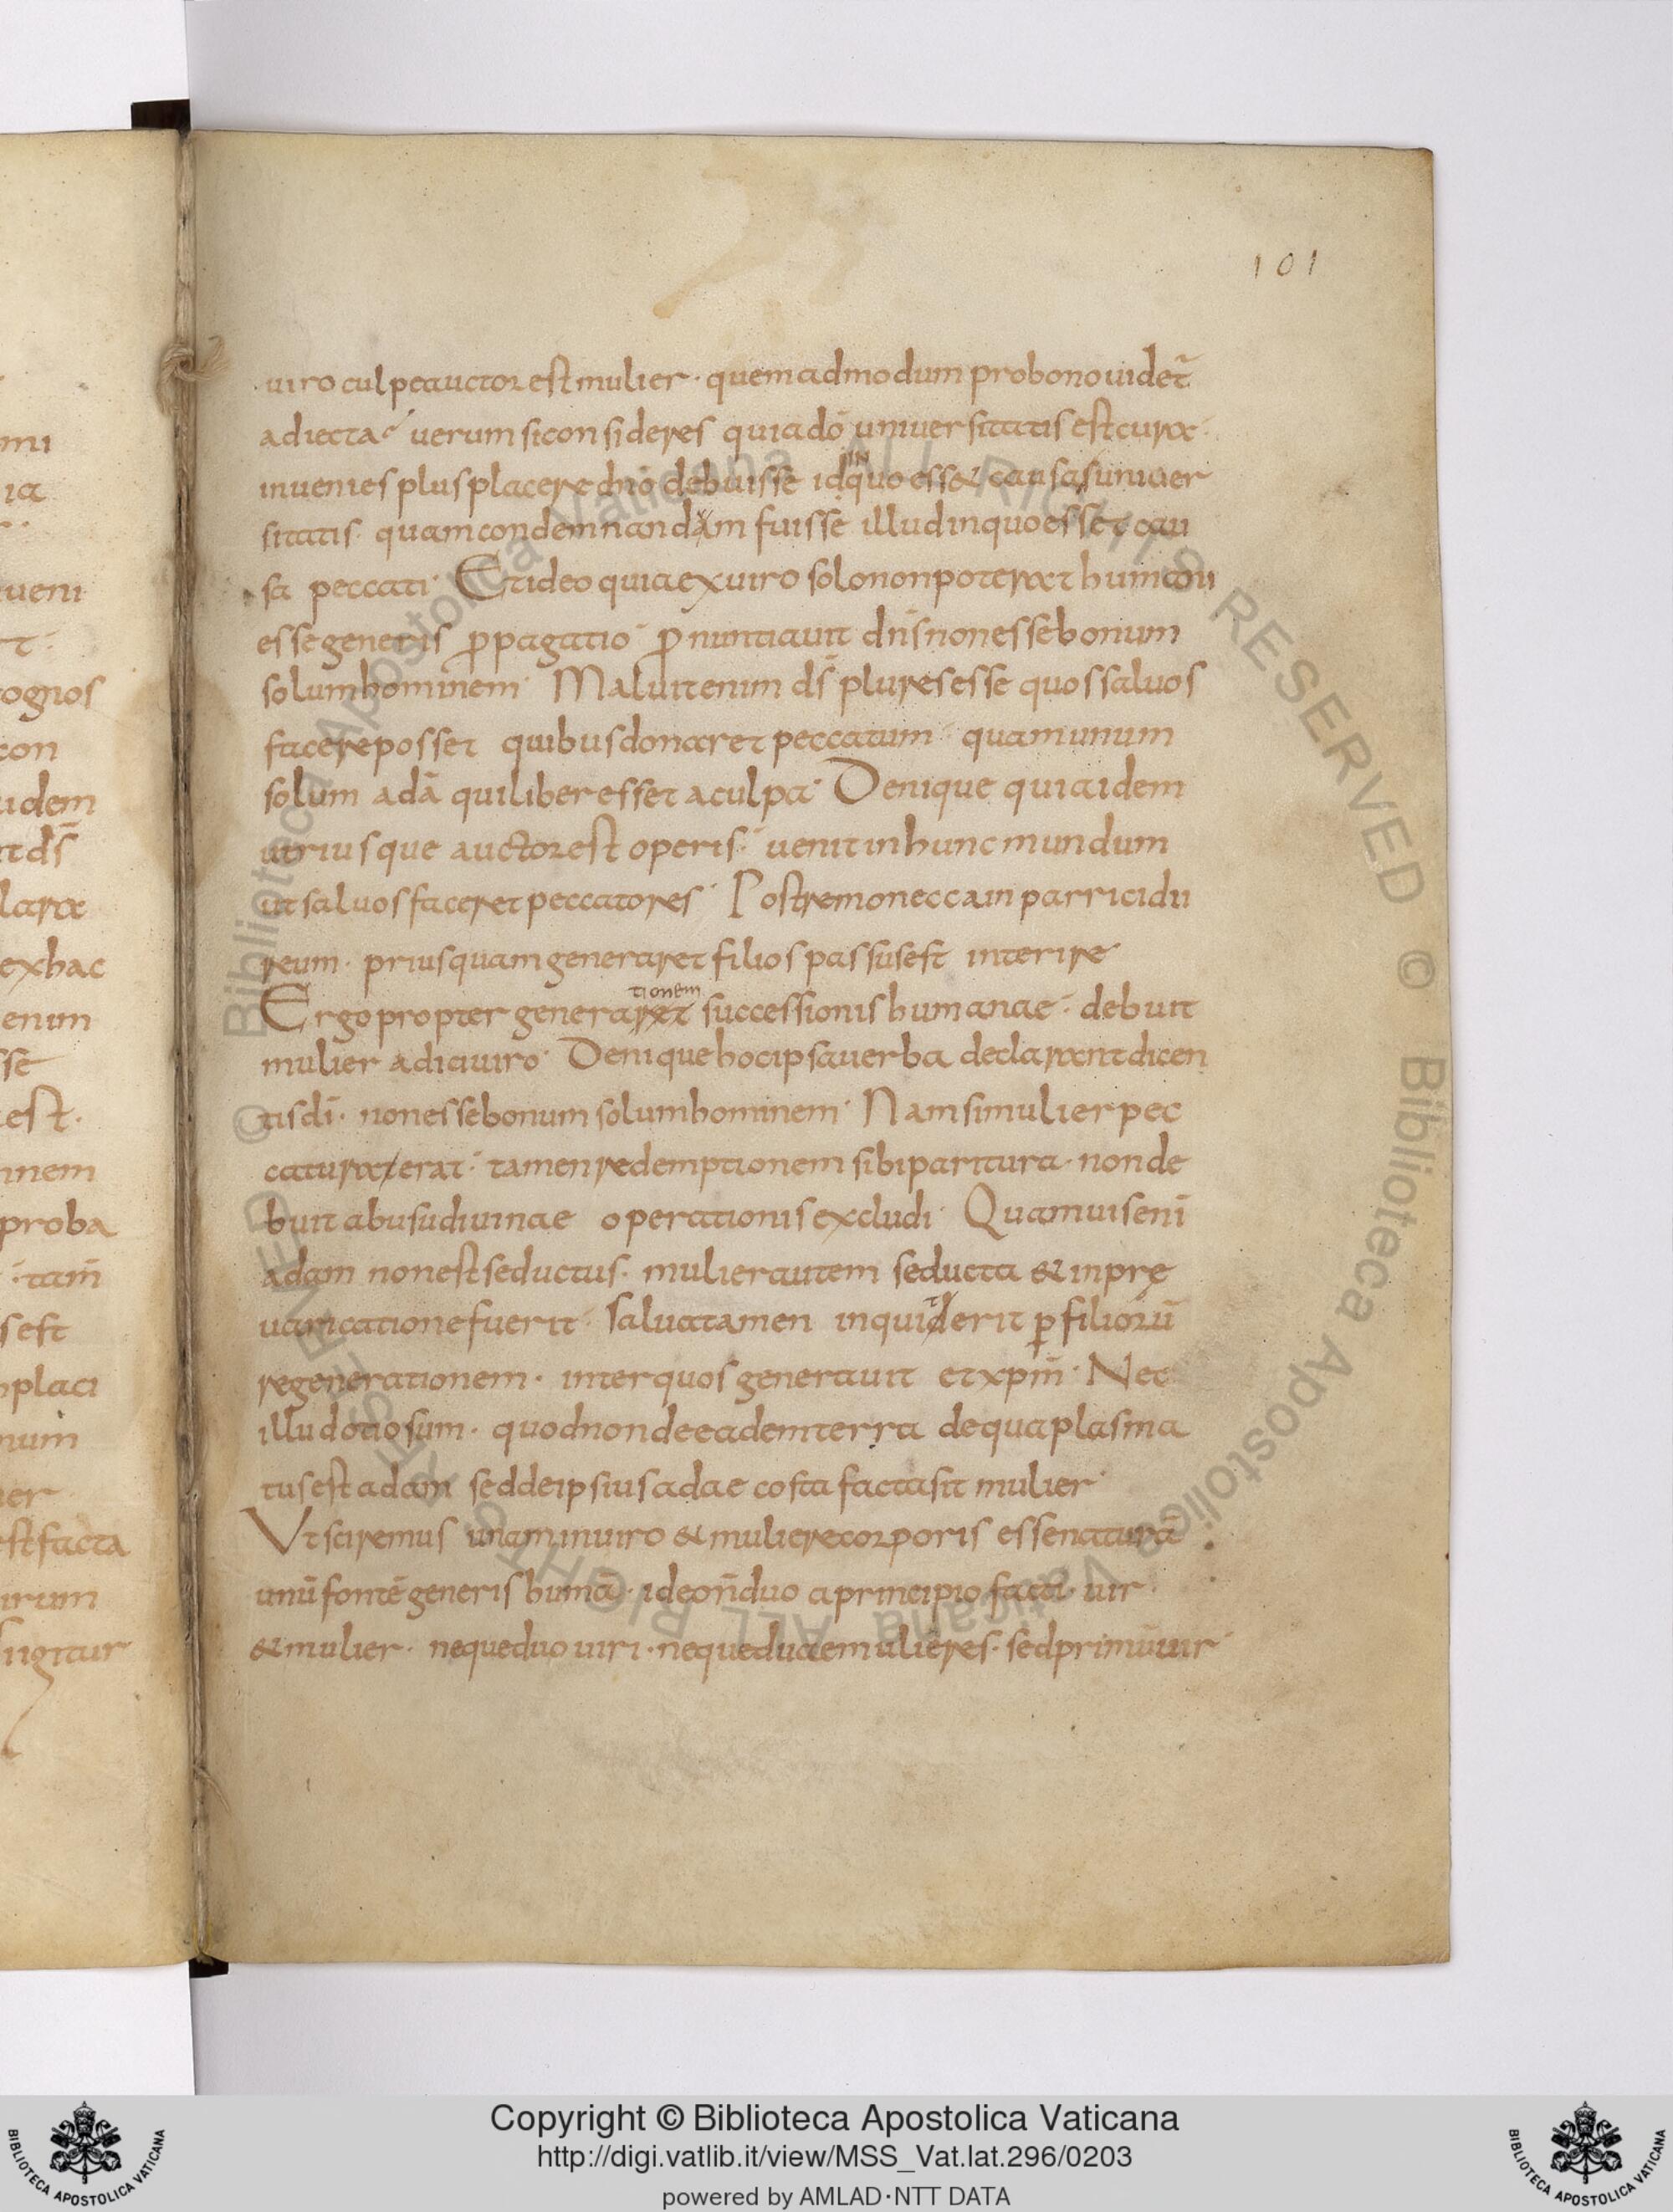 101
uiro culpe auctor est mulier · quemadmodum probono uidet̄
adiecta · uerum si consideres quia dō uniuersitatis est cura ·
inuenies plus placere dn̄o debuisse id IN quo ess& causa suniuer
sitatis · quam condemnandam fuisse illud in quo esset cau
sa peccati · Et ideo quia ex uiro solo non poterat humani
esse generis ꝓpagatio · ꝓnuntiauit dn̄s non esse bonum
solum hominem · Maluit enim ds̄ plures esse quos saluos
facere posset quibus donaret peccatum · quam unum
solum adā qui liber esset a culpa · Denique quia idem
utriusque auctor est operis · uenit in hunc mundum
ut saluos faceret peccatores · Postremo nec cain parricidii
reum · prius quam generaret filios passus est interire
tionem
Ergo propter generaret successionis humanae · debuit
mulier adici uiro · Denique hoc ipsa uerba declarant dicen
tis dī · non esse bonum solum hominem · Nam si mulier pec
catura erat · tamen redemptionem sibi paritura · non de
buit ab usu diuinae operationis excludi · Quamuis enī
adam non est seductus · mulier autem seducta & in prę
uaricatione fuerit · salua tamen inquit erit ꝑ filiorū
regenerationem · inter quos generauit et xpm̄ · Nec
illud otiosum · quod non de eadem terra de qua plasma
tus est adam sed de ipsius adae costa facta sit mulier ·
Ut sciremus unam in uiro & muliere corporis esse naturā
unū fontē generis humā · ideo n̄ duo a principio facti · uir
& mulier · neque duo uiri · neque duae mulieres · sed primū uir
mi
ia
ueni
t ·
cognos
con
uidem
it ds̄
lara
ex hac
enim
sse
est ·
inem
proba
· tam̄
s est
placi
num
er
est facta
irum
s igitur
© Biblioteca Apostolica Vaticana ALL RIGHTS RESERVED © Biblioteca Apostolica Vaticana ALL RIGHTS RESERVED
Copyright © Biblioteca Apostolica Vaticana
http://digi.vatlib.it/view/MSS_Vat.lat.296/0203
powered by AMLAD·NTT DATA
BIBLIOTECA APOSTOLICA VATICANA
BIBLIOTECA APOSTOLICA VATICANA